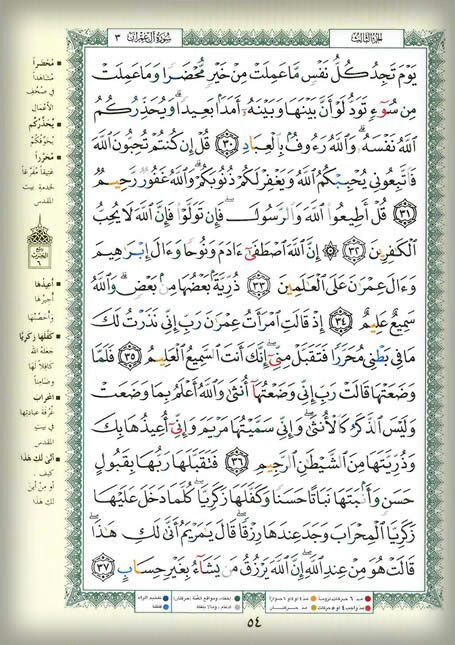 سورة آل عمران ٣
الجزء الثالث
يَوْمَ تَجِدُ كُلُّ نَفْسٍ مَّا عَمِلَتْ مِنْ خَيْرٍ مُّحْضَرًا وَمَا عَمِلَتْ
مِن سُوٓءٍ تَوَدُّ لَوْ أَنَّ بَيْنَهَا وَبَيْنَهُۥٓ أَمَدَۢا بَعِيدًا ۗ وَيُحَذِّرُكُمُ
ٱللَّهُ نَفْسَهُۥ ۗ وَٱللَّهُ رَءُوفٌۢ بِٱلْعِبَادِ ٣٠ قُلْ إِن كُنتُمْ تُحِبُّونَ ٱللَّهَ
فَٱتَّبِعُونِى يُحْبِبْكُمُ ٱللَّهُ وَيَغْفِرْ لَكُمْ ذُنُوبَكُمْ ۗ وَٱللَّهُ غَفُورٌ رَّحِيمٌ
٣١ قُلْ أَطِيعُوا۟ ٱللَّهَ وَٱلرَّسُولَ ۖ فَإِن تَوَلَّوْا۟ فَإِنَّ ٱللَّهَ لَا يُحِبُّ
ٱلْكَٰفِرِينَ ٣٢ ۞ إِنَّ ٱللَّهَ ٱصْطَفَىٰٓ ءَادَمَ وَنُوحًا وَءَالَ إِبْرَٰهِيمَ
وَءَالَ عِمْرَٰنَ عَلَى ٱلْعَٰلَمِينَ ٣٣ ذُرِّيَّةَۢ بَعْضُهَا مِنۢ بَعْضٍ ۗ وَٱللَّهُ
سَمِيعٌ عَلِيمٌ ٣٤ إِذْ قَالَتِ ٱمْرَأَتُ عِمْرَٰنَ رَبِّ إِنِّى نَذَرْتُ لَكَ
مَا فِى بَطْنِى مُحَرَّرًا فَتَقَبَّلْ مِنِّىٓ ۖ إِنَّكَ أَنتَ ٱلسَّمِيعُ ٱلْعَلِيمُ ٣٥ فَلَمَّا
وَضَعَتْهَا قَالَتْ رَبِّ إِنِّى وَضَعْتُهَآ أُنثَىٰ وَٱللَّهُ أَعْلَمُ بِمَا وَضَعَتْ
وَلَيْسَ ٱلذَّكَرُ كَٱلْأُنثَىٰ ۖ وَإِنِّى سَمَّيْتُهَا مَرْيَمَ وَإِنِّىٓ أُعِيذُهَا بِكَ
وَذُرِّيَّتَهَا مِنَ ٱلشَّيْطَٰنِ ٱلرَّجِيمِ ٣٦ فَتَقَبَّلَهَا رَبُّهَا بِقَبُولٍ
حَسَنٍ وَأَنۢبَتَهَا نَبَاتًا حَسَنًا وَكَفَّلَهَا زَكَرِيَّا ۖ كُلَّمَا دَخَلَ عَلَيْهَا
زَكَرِيَّا ٱلْمِحْرَابَ وَجَدَ عِندَهَا رِزْقًا ۖ قَالَ يَٰمَرْيَمُ أَنَّىٰ لَكِ هَٰذَا ۖ
قَالَتْ هُوَ مِنْ عِندِ ٱللَّهِ ۖ إِنَّ ٱللَّهَ يَرْزُقُ مَن يَشَآءُ بِغَيْرِ حِسَابٍ ٣٧
مُحْضَرًا
مشاهدًا
في صحف
الأعمال
يُحَذِّرُكُم
يخوّفكم
مُحَرَّرًا
عتيقًا مفرّغًا
لخدمة بيت
المقدس
أُعِيذُهَا
أجيرها
وأحصّنها
كَفَّلَهَا زَكَرِيَّا
جعله الله
كافلًا لها
وضامنًا
الْمِحْرَاب
غرفة عبادتها
في بيت
المقدس
أَنَّىٰ لَكِ هَٰذَا
كيف
أو من أين
لك هذا
٥٤